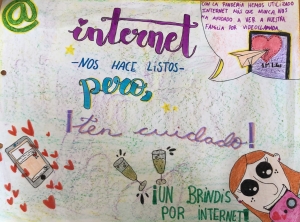 @
CON LA PANDEMIA HEMOS UTILIZADO
INTERNET MÁS QUE NUNCA NOS
HA AYUDADO A VER A NUESTRA
FAMILIA POR VIDEOLLAMADA
internet
-NOS HACE LISTOS-
pero,
¡ten cuidado!
¡UN BRINDIS
POR INTERNET!